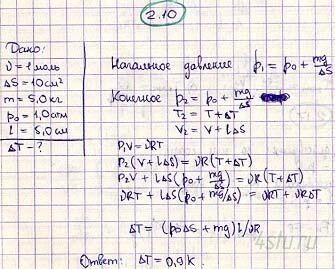 2.10
Дано:
ν = 1 моль
ΔS = 10 см²
m = 5,0 кг
p₀ = 1,0 атм
l = 5,0 см
ΔT - ?
Начальное давление p₁ = p₀ + mg/ΔS
Конечное p₂ = p₀ + mg/ΔS
T₂ = T + ΔT
V₂ = V + lΔS
P₁V = νRT
P₂(V + lΔS) = νR(T + ΔT)
P₂V + lΔS(p₀ + mg/ΔS) = νR(T + ΔT)
νRT + lΔS(p₀ + mg/ΔS) = νRT + νRΔT
ΔT = (p₀ΔS + mg) l/νR
Ответ: ΔT = 0,9 К.
4stu.ru